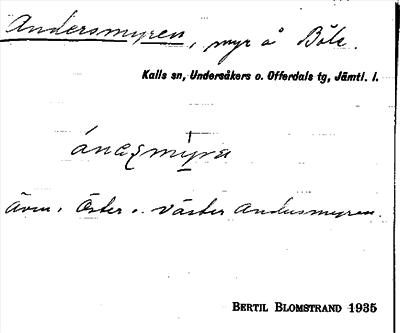 Andersmyren, myr å Böle.
Kalls sn, Undersåkers o. Offerdals tg, Jämtl. l.
Även, Öster o. Väster Andersmyren.
BERTIL BLOMSTRAND 1935